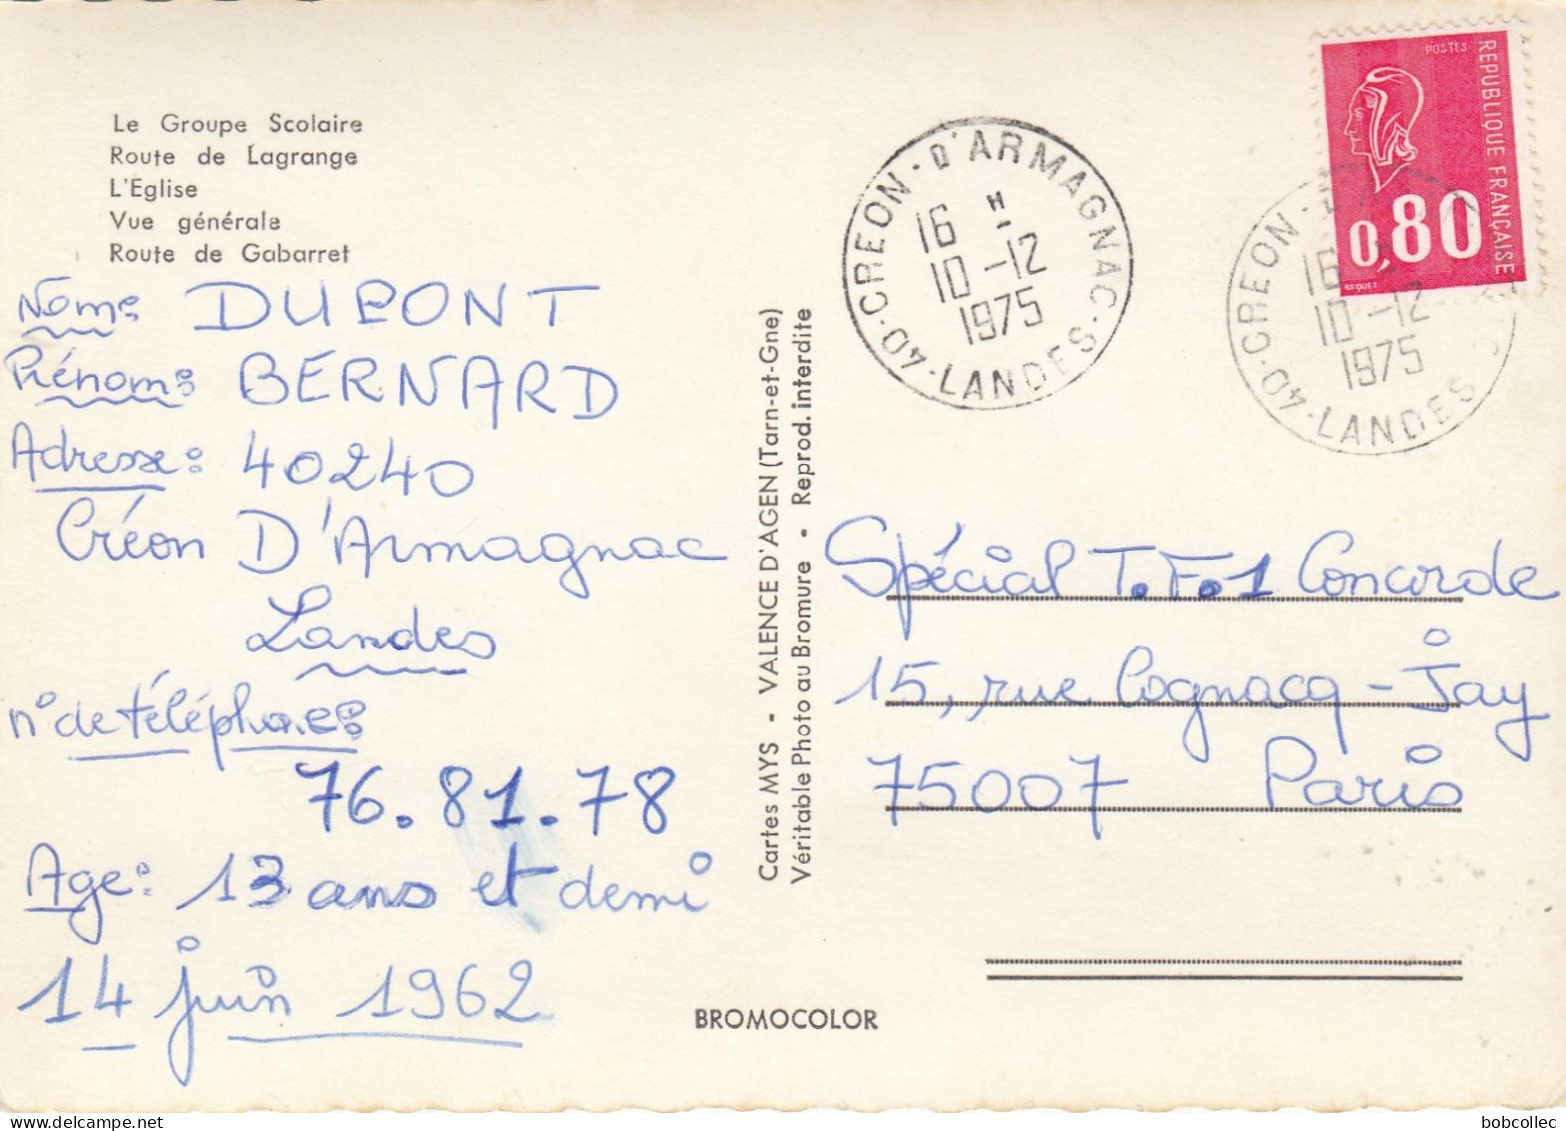 Le Groupe Scolaire
Route de Lagrange
L'Eglise
Vue générale
Route de Gabarret
Nom: DUPONT
Prénom: BERNARD
Adresse: 40240
Créon D'Armagnac
Landes
n° de téléphone:
76.81.78
Age: 13 ans et demi
14 juin 1962
Cartes MYS - VALENCE D'AGEN (Tarn-et-Gne)
Véritable Photo au Bromure - Reprod. interdite
BROMOCOLOR
CREON-D'ARMAGNAC
16 H
10-12
1975
40-LANDES
POSTES
REPUBLIQUE FRANÇAISE
0,80
BEQUET
CREON-D'
16
10-12
1975
40-LANDES
Spécial T.F.1 Concorde
15, rue Cognacq-Jay
75007 Paris
bobcollec